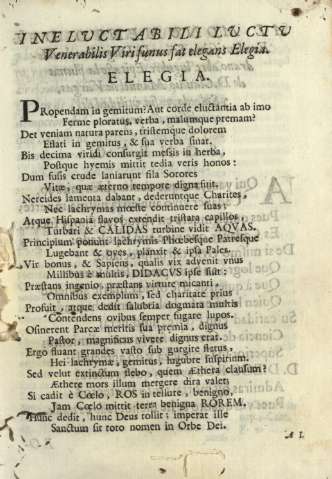 INELUCTABILI LUCTU
Venerabilis Viri funus sat elegans Elegia.
ELEGIA.
PRopendam in gemitum? Aut corde eluctantia ab imo
Ferme ploratus, verba, malumque premam?
Det veniam natura parens, tristemque dolorem
Effati in gemitus, & sua verba sinat.
Bis decima viridi consurgit messis in herba,
Postque hyemis mittit tedia veris honos:
Dum fusis crude laniarunt fila Sorores
Vitæ, quæ æterno tempore digna fuit.
Nereides lamenta dabant, dederuntque Charites,
Nec lachrymas mœste continuere suas:
Atque Hispania flavos extendit tristata capillos
Turbati & CALIDAS turbine vidit AQVAS.
Principium ponunt lachrymis Phœbesque Patresque
Lugebant & oves, planxit & ipsa Pales.
Vir bonus, & Sapiens, qualis vix advenit vnus
Millibus è multis, DIDACVS ipse fuit:
Præstans ingenio, præstans virtute micanti,
Omnibus exemplum, sed charitate prius
Profuit, atque dedit salubria dogmata multis
Contendens ovibus semper fugare lupos.
Obtinerent Parcæ meritis sua premia, dignus
Pastor, magnificis vivere dignus erat.
Ergo fluant grandes vasto sub gurgite fletus,
Hei lachrymæ, gemitus, lugubre suspirium.
Sed velut extinctum flebo, quem Æthera clausum?
Æthere mors illum mergere dira valet?
Si cadit è Cœlo, ROS in tellure, benigno,
Jam Cœlo mittit terra benigna ROREM.
Hunc dedit, hunc Deus tollit: imperat ille
Sanctum sit toto nomen in Orbe Dei.
A I.